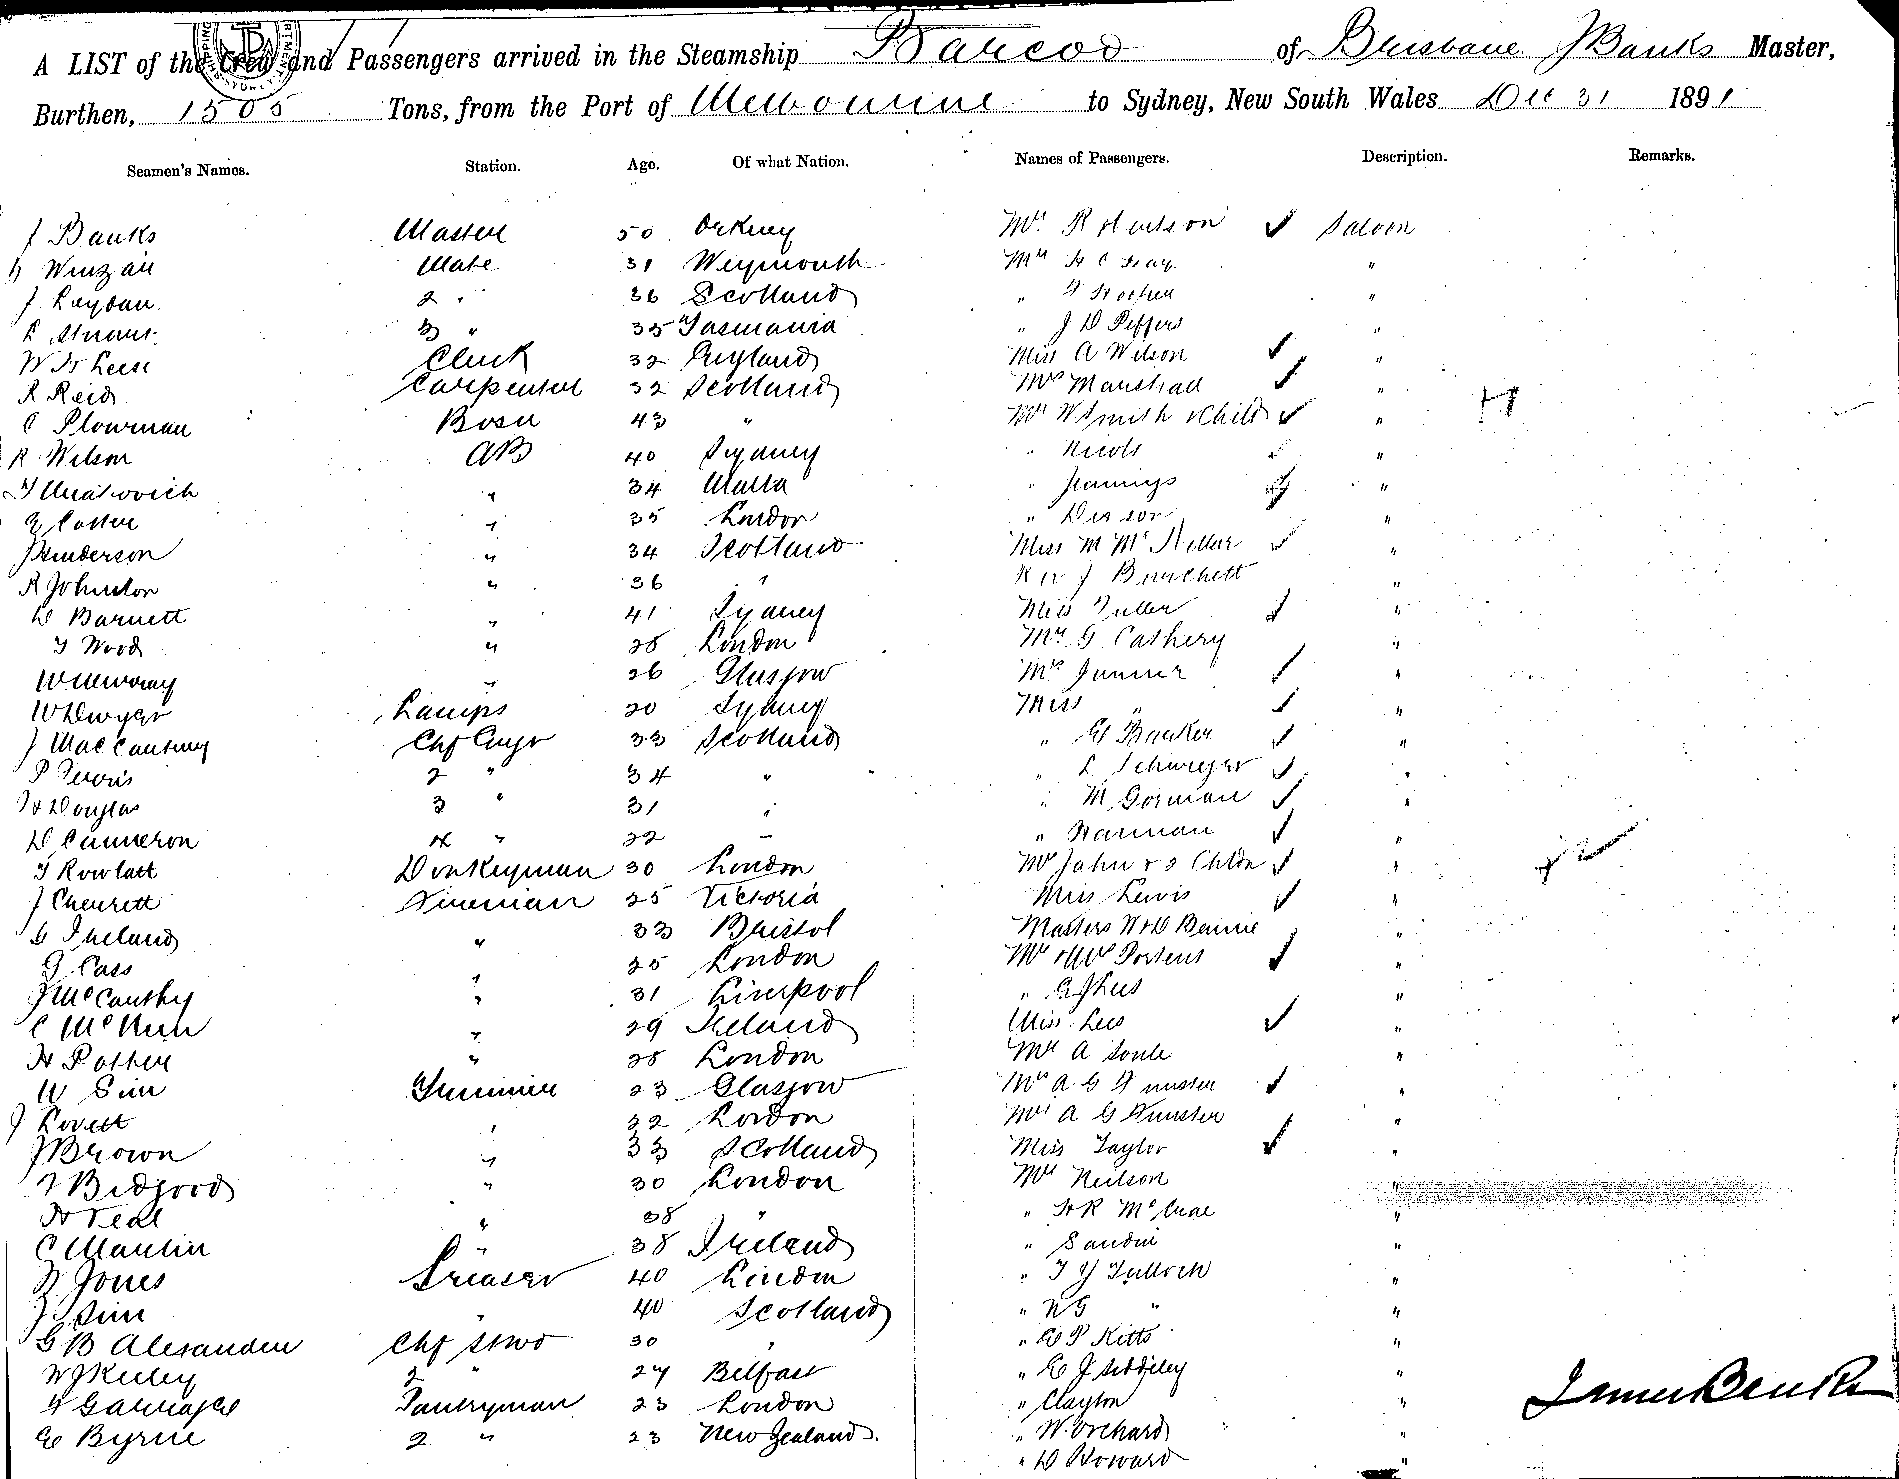 A LIST of the Crew and Passengers arrived in the Steamship Barcoo of Brisbane J Banks Master,
Burthen, 1505 Tons, from the Port of Melbourne to Sydney, New South Wales Dec 31 1891
Seamen's Names. Station. Age. Of what Nation. Names of Passengers. Description. Remarks.
J Banks Master 50 Orkney Mr. Robertson ✓ Saloon
Mate 31 Weymouth Mr H C Gray "
2 " 36 Scotland " "
3 " 35 Tasmania " J D Peffers "
W H Leese Clerk 32 England Miss A Wilson ✓ "
R Reid Carpenter 32 Scotland Mrs Marshall ✓ "
C Plowman Bosn 43 " Mrs W Smith & Child ✓ "
R Wilson AB 40 Sydney " Nicols "
" 34 Malta " Jennings "
" 35 London " "
J Henderson " 34 Scotland Miss M Mc Kellar ✓ "
R Johnston " 36 " Rev J Burchett "
D Barnett " 41 Sydney Miss Fuller ✓ "
T Wood " 28 London Mr G Cathery "
W Murray " 26 Glasgow Mrs Junner ✓ "
W Dwyer Lamps 20 Sydney Miss " ✓ "
J MacCartney Chf Engr 33 Scotland " Barker ✓ "
P 2 " 34 " " L ✓ "
H Douglas 3 " 31 " " M Gorman ✓ "
D Cameron 4 " 22 " " Harman ✓ "
T Rowlatt Donkeyman 30 London Mrs Jahn & 2 Chldn ✓ "
J Fireman 25 Victoria Miss Lewis ✓ "
G Ireland " 33 Bristol Masters "
G Cass " 25 London Mr & Mrs ✓ "
J McCarthy " 31 Liverpool " "
C " 29 Ireland Miss Lees ✓ "
H " 28 London Mr A Soule "
W Sim Trimmer 23 Glasgow Mrs A G ✓ "
J Lovett " 22 London Mr A G "
J Brown " 33 Scotland Miss Taylor ✓ "
T Bidgood " 30 London Mr Neilson "
H Veal " 38 " " H R "
C Martin " 38 Ireland " "
Jones Greaser 40 London " T Y Tulloch "
J Sim " 40 Scotland " N G " "
G B Alexander Chf Stwd 30 " " E P Kitts "
W J 2 " 27 Belfast " E J "
Pantryman 23 London " Clayton "
E Byrne 2 " 23 New Zealand. " W. Orchard "
" D Howard "
James Banks